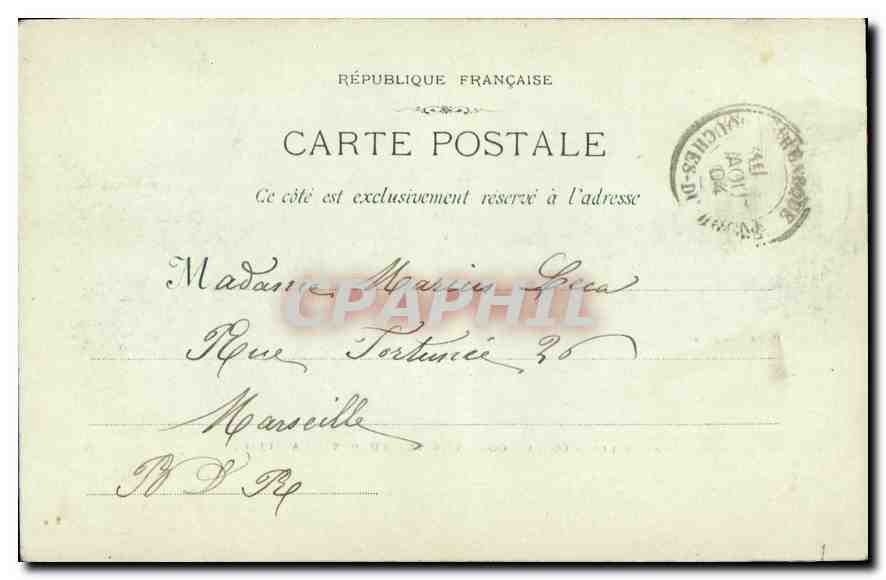 RÉPUBLIQUE FRANÇAISE
CARTE POSTALE
Ce côté est exclusivement réservé à l'adresse
BOUCHES-DU-
AOUT
04
Madame Marius Luca
CPAPHIL
Rue Fortunée 26
Marseille
B D R